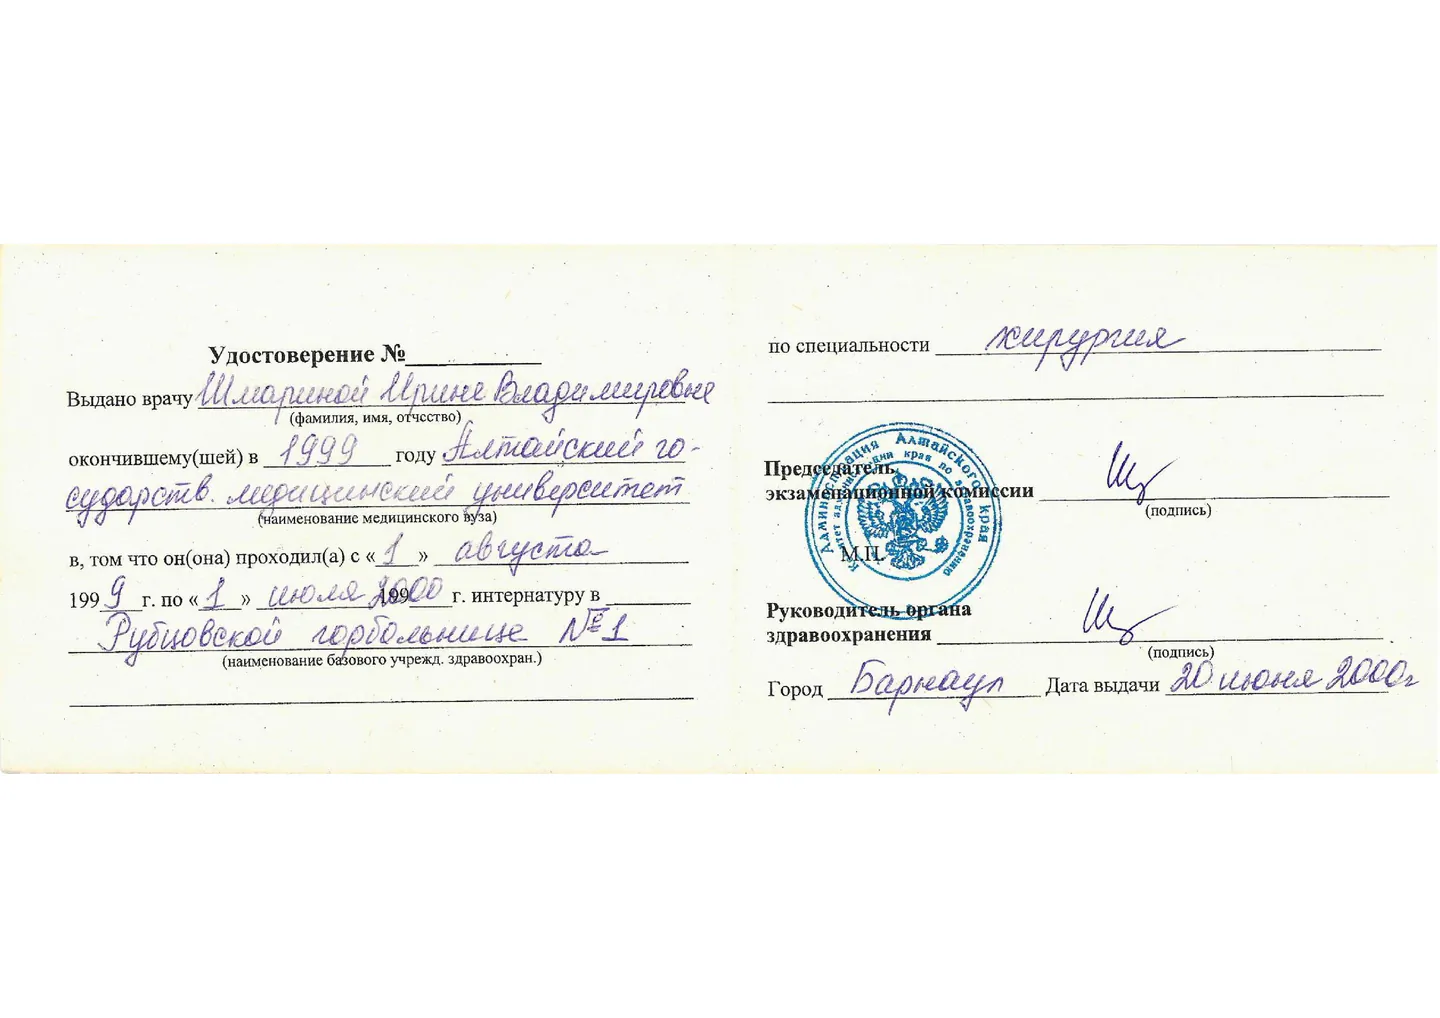 Удостоверение №
Выдано врачу Шмариной Ирине Владимировне
(фамилия, имя, отчество)
окончившему(шей) в 1999 году Алтайский го-
сударств. медицинский университет
(наименование медицинского вуза)
в, том что он(она) проходил(а) с « 1 » августа
199 9 г. по « 1 » июля 2000 г. интернатуру в
Рубцовской горбольнице № 1
(наименование базового учрежд. здравоохран.)
по специальности хирургия
Председатель
экзаменационной комиссии
(подпись)
М.П.
Администрация Алтайского края
Комитет администрации края по здравоохранению
Руководитель органа
здравоохранения
(подпись)
Город Барнаул Дата выдачи 20 июня 2000г